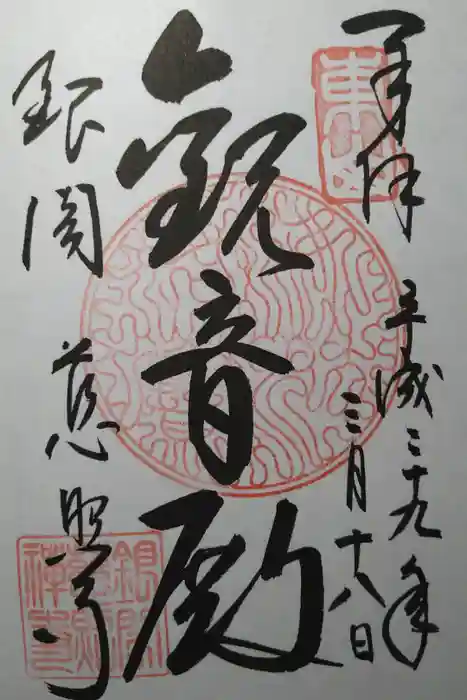 奉拝
平成二十九年
三月十八日
観音殿
銀閣
慈照寺
東山
銀閣
慈照
禅寺